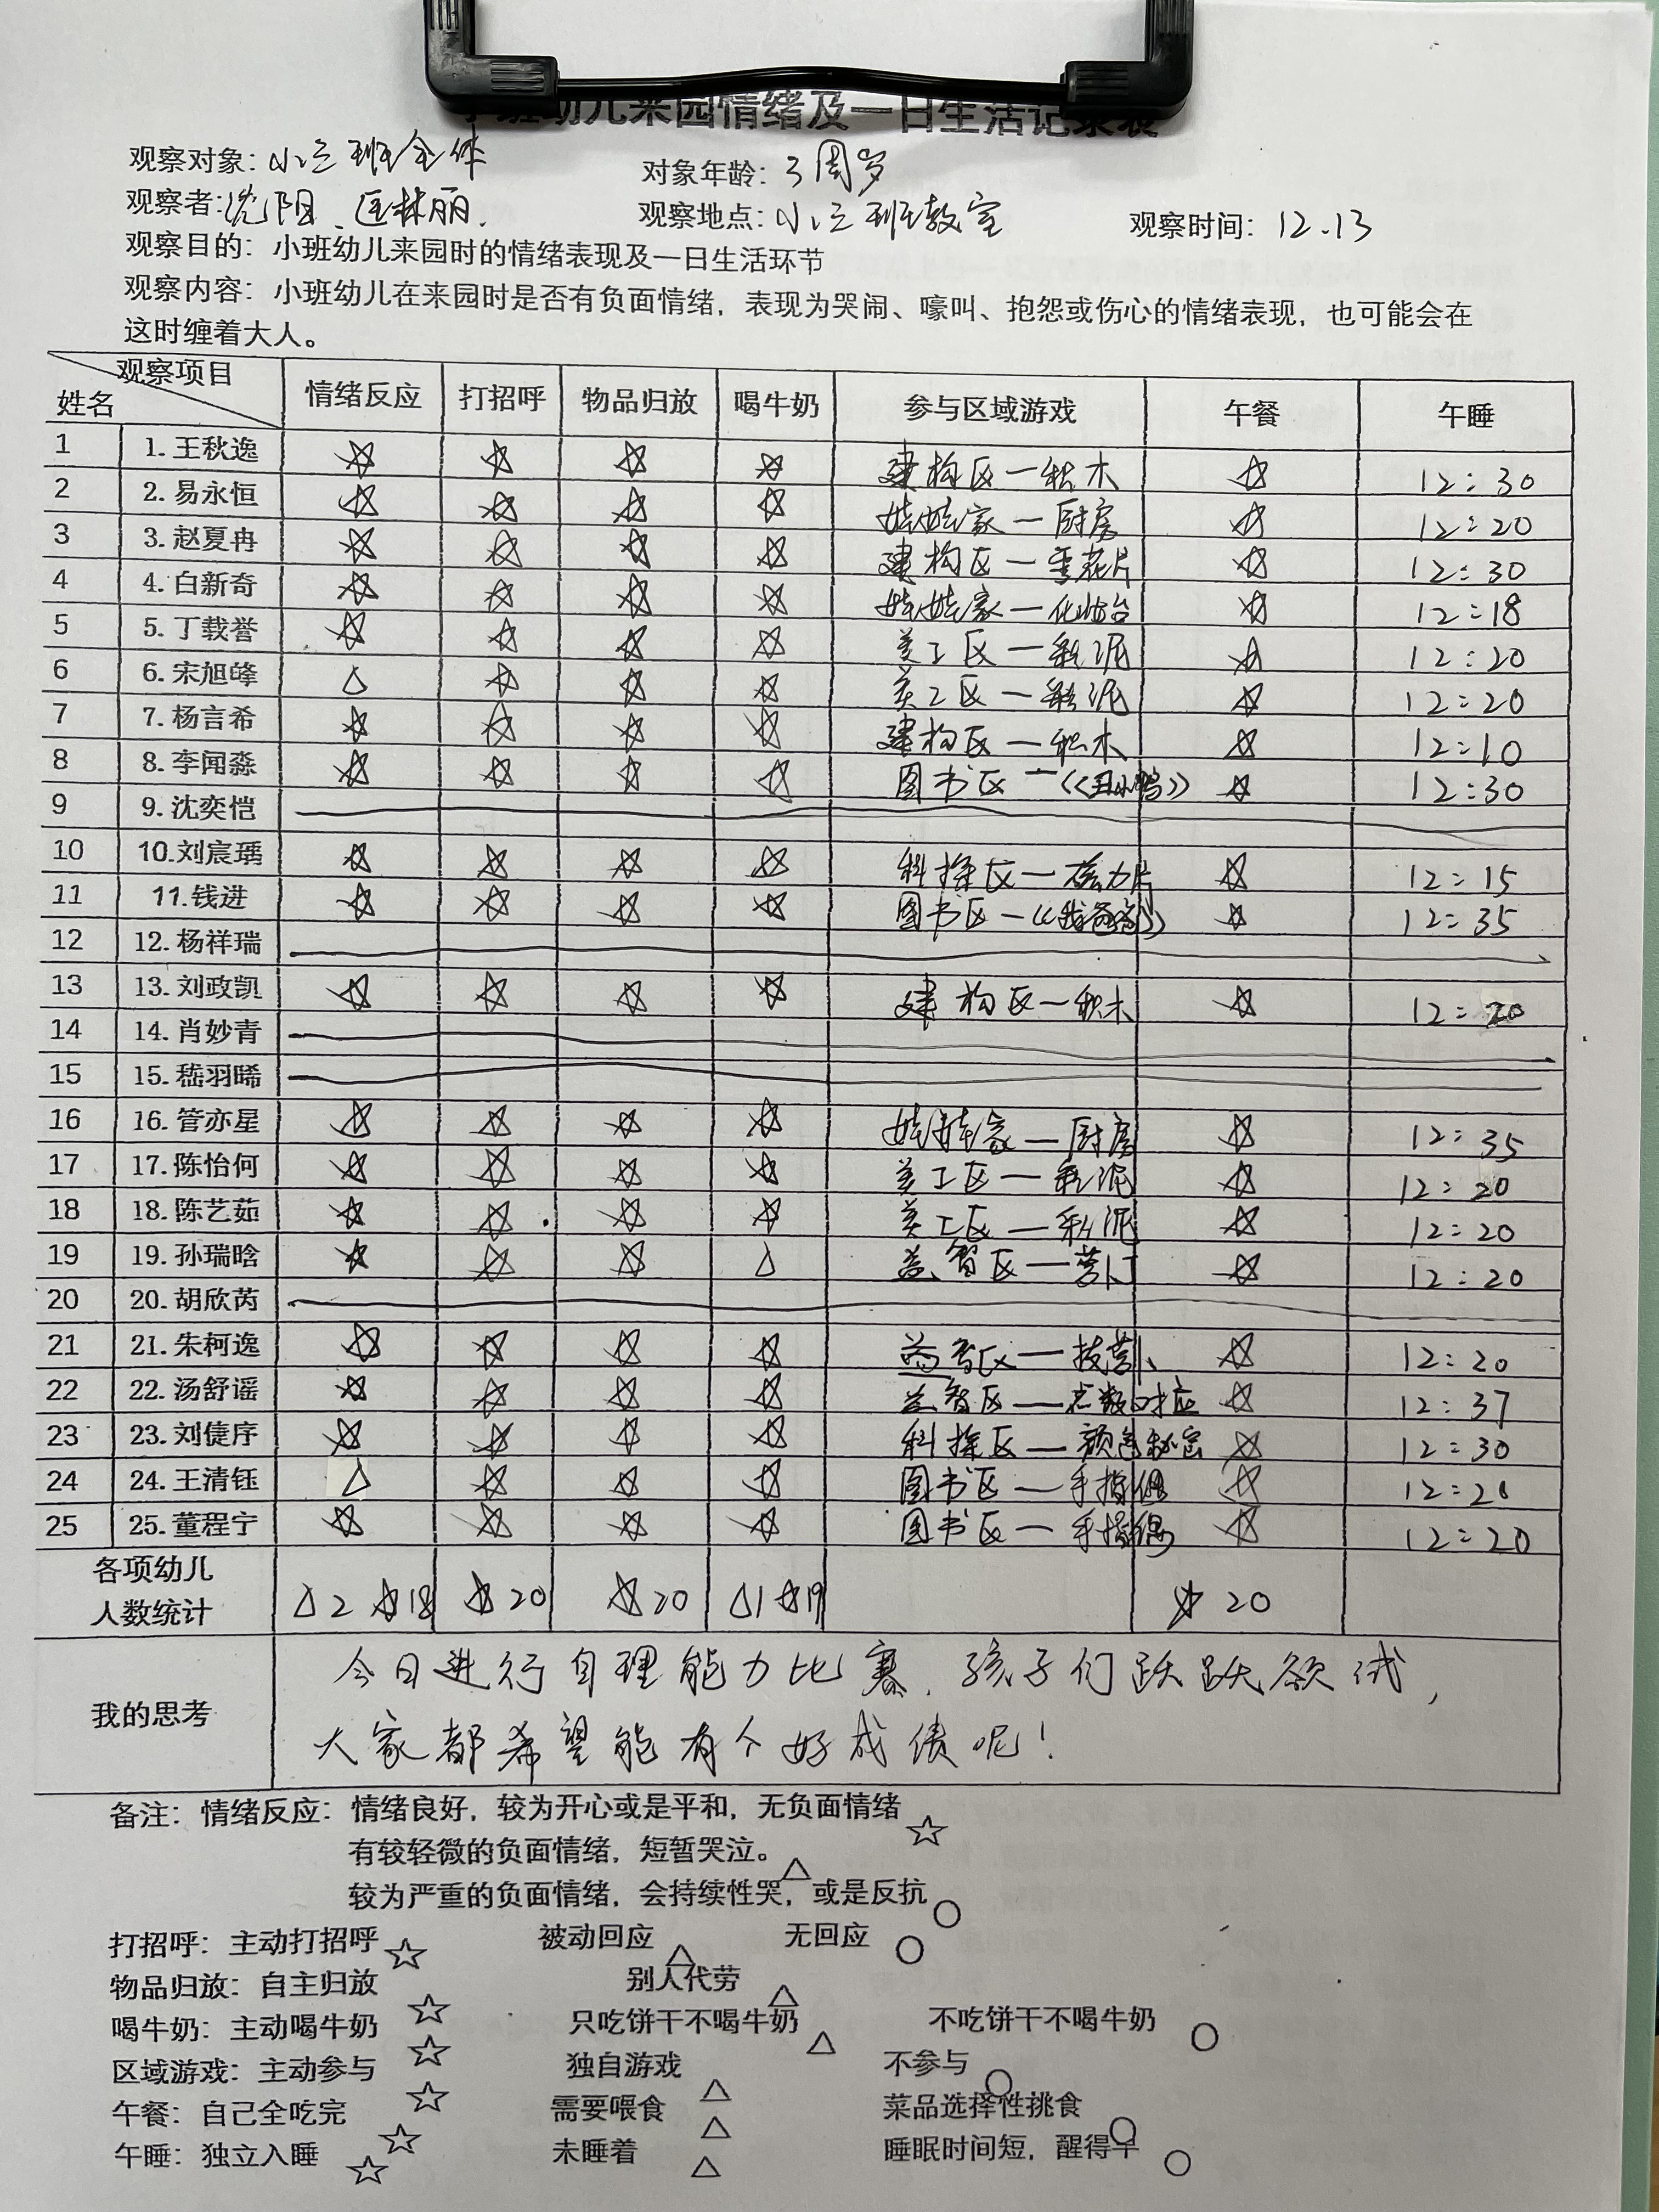 小班幼儿来园情绪及一日生活记录表
观察对象：小三班全体 对象年龄：3周岁
观察者：沈阳、匡林丽. 观察地点：小三班教室 观察时间：12.13
观察目的：小班幼儿来园时的情绪表现及一日生活环节
观察内容：小班幼儿在来园时是否有负面情绪，表现为哭闹、嚎叫、抱怨或伤心的情绪表现，也可能会在
这时缠着大人。
观察项目 姓名 情绪反应 打招呼 物品归放 喝牛奶 参与区域游戏 午餐 午睡
1 1. 王秋逸 ☆ ☆ ☆ ☆ 建构区—积木 ☆ 12:30
2 2. 易永恒 ☆ ☆ ☆ ☆ 娃娃家—厨房 ☆ 12:20
3 3. 赵夏冉 ☆ ☆ ☆ ☆ 建构区—雪花片 ☆ 12:30
4 4. 白新奇 ☆ ☆ ☆ ☆ 娃娃家—化妆台 ☆ 12:18
5 5. 丁载誉 ☆ ☆ ☆ ☆ 美工区—彩泥 ☆ 12:20
6 6. 宋旭峰 △ ☆ ☆ ☆ 美工区—彩泥 ☆ 12:20
7 7. 杨言希 ☆ ☆ ☆ ☆ 建构区—积木 ☆ 12:10
8 8. 李闻淼 ☆ ☆ ☆ ☆ 图书区—《丑小鸭》 ☆ 12:30
9 9. 沈奕恺
10 10. 刘宸瑀 ☆ ☆ ☆ ☆ 科探区—磁力片 ☆ 12:15
11 11. 钱进 ☆ ☆ ☆ ☆ 图书区—《我爸爸》 ☆ 12:35
12 12. 杨祥瑞
13 13. 刘政凯 ☆ ☆ ☆ ☆ 建构区—积木 ☆ 12:20
14 14. 肖妙青
15 15. 嵇羽晞
16 16. 管亦星 ☆ ☆ ☆ ☆ 娃娃家—厨房 ☆ 12:35
17 17. 陈怡何 ☆ ☆ ☆ ☆ 美工区—彩泥 ☆ 12:20
18 18. 陈艺茹 ☆ ☆ ☆ ☆ 美工区—彩泥 ☆ 12:20
19 19. 孙瑞晗 ☆ ☆ ☆ △ 益智区— ☆ 12:20
20 20. 胡欣芮
21 21. 朱柯逸 ☆ ☆ ☆ ☆ 益智区— ☆ 12:20
22 22. 汤舒谣 ☆ ☆ ☆ ☆ 益智区—点数对应 ☆ 12:37
23 23. 刘倢序 ☆ ☆ ☆ ☆ 科探区—颜色秘密 ☆ 12:30
24 24. 王清钰 △ ☆ ☆ ☆ 图书区—手指偶 ☆
25 25. 董程宁 ☆ ☆ ☆ ☆ 图书区—手指偶 ☆ 12:20
各项幼儿
人数统计 △2 ☆18 ☆20 ☆20 △1 ☆19 ☆20
我的思考
今日进行自理能力比赛，孩子们跃跃欲试，
大家都希望能有个好成绩呢！
备注：情绪反应：情绪良好，较为开心或是平和，无负面情绪☆
有较轻微的负面情绪，短暂哭泣。△
较为严重的负面情绪，会持续性哭，或是反抗○
打招呼：主动打招呼☆ 被动回应△ 无回应○
物品归放：自主归放☆ 别人代劳△
喝牛奶：主动喝牛奶☆ 只吃饼干不喝牛奶△ 不吃饼干不喝牛奶○
区域游戏：主动参与☆ 独自游戏△ 不参与○
午餐：自己全吃完☆ 需要喂食△ 菜品选择性挑食○
午睡：独立入睡☆ 未睡着△ 睡眠时间短，醒得早○